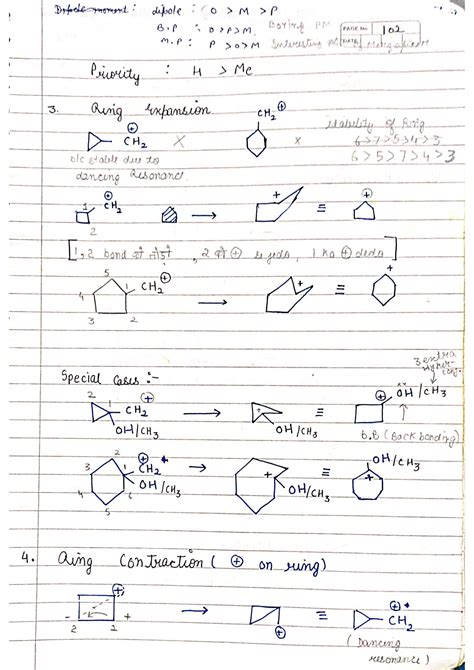 Dipole moment : dipole : O > M > P
B.P : O > P > M. Boring PM
M.P : P > O > M Interesting
PAGE NO. 102
DATE
Priority : H > Me
3. Ring Expansion
⊕ CH2 × CH2 ⊕ ×
Stability of Ring
6>7>5>4>3
6>5>7>4>3
b/c stable due to
dancing Resonance
1 ⊕ CH2 → + ≡ ⊕
2
[1,2 bond को तोड़ो, 2 को ⊕ से जोड़ो, 1 को ⊕ देदो]
5 4 1 CH2 ⊕ → + ≡ +
3 2
Special Cases :-
3 extra
Hyper-
conj.
2 1 ⊕ CH2 → + ≡ ⊕ OH/CH3
OH/CH3 OH/CH3
B.B (Back bonding)
2 3 1 ⊕ CH2 * → + OH/CH3 ≡ OH/CH3 +
4 5 6 OH/CH3
4. Ring Contraction ( ⊕ on ring)
⊕ → ⊕ ≡ ⊕ CH2
2 1 +
(Dancing
resonance)